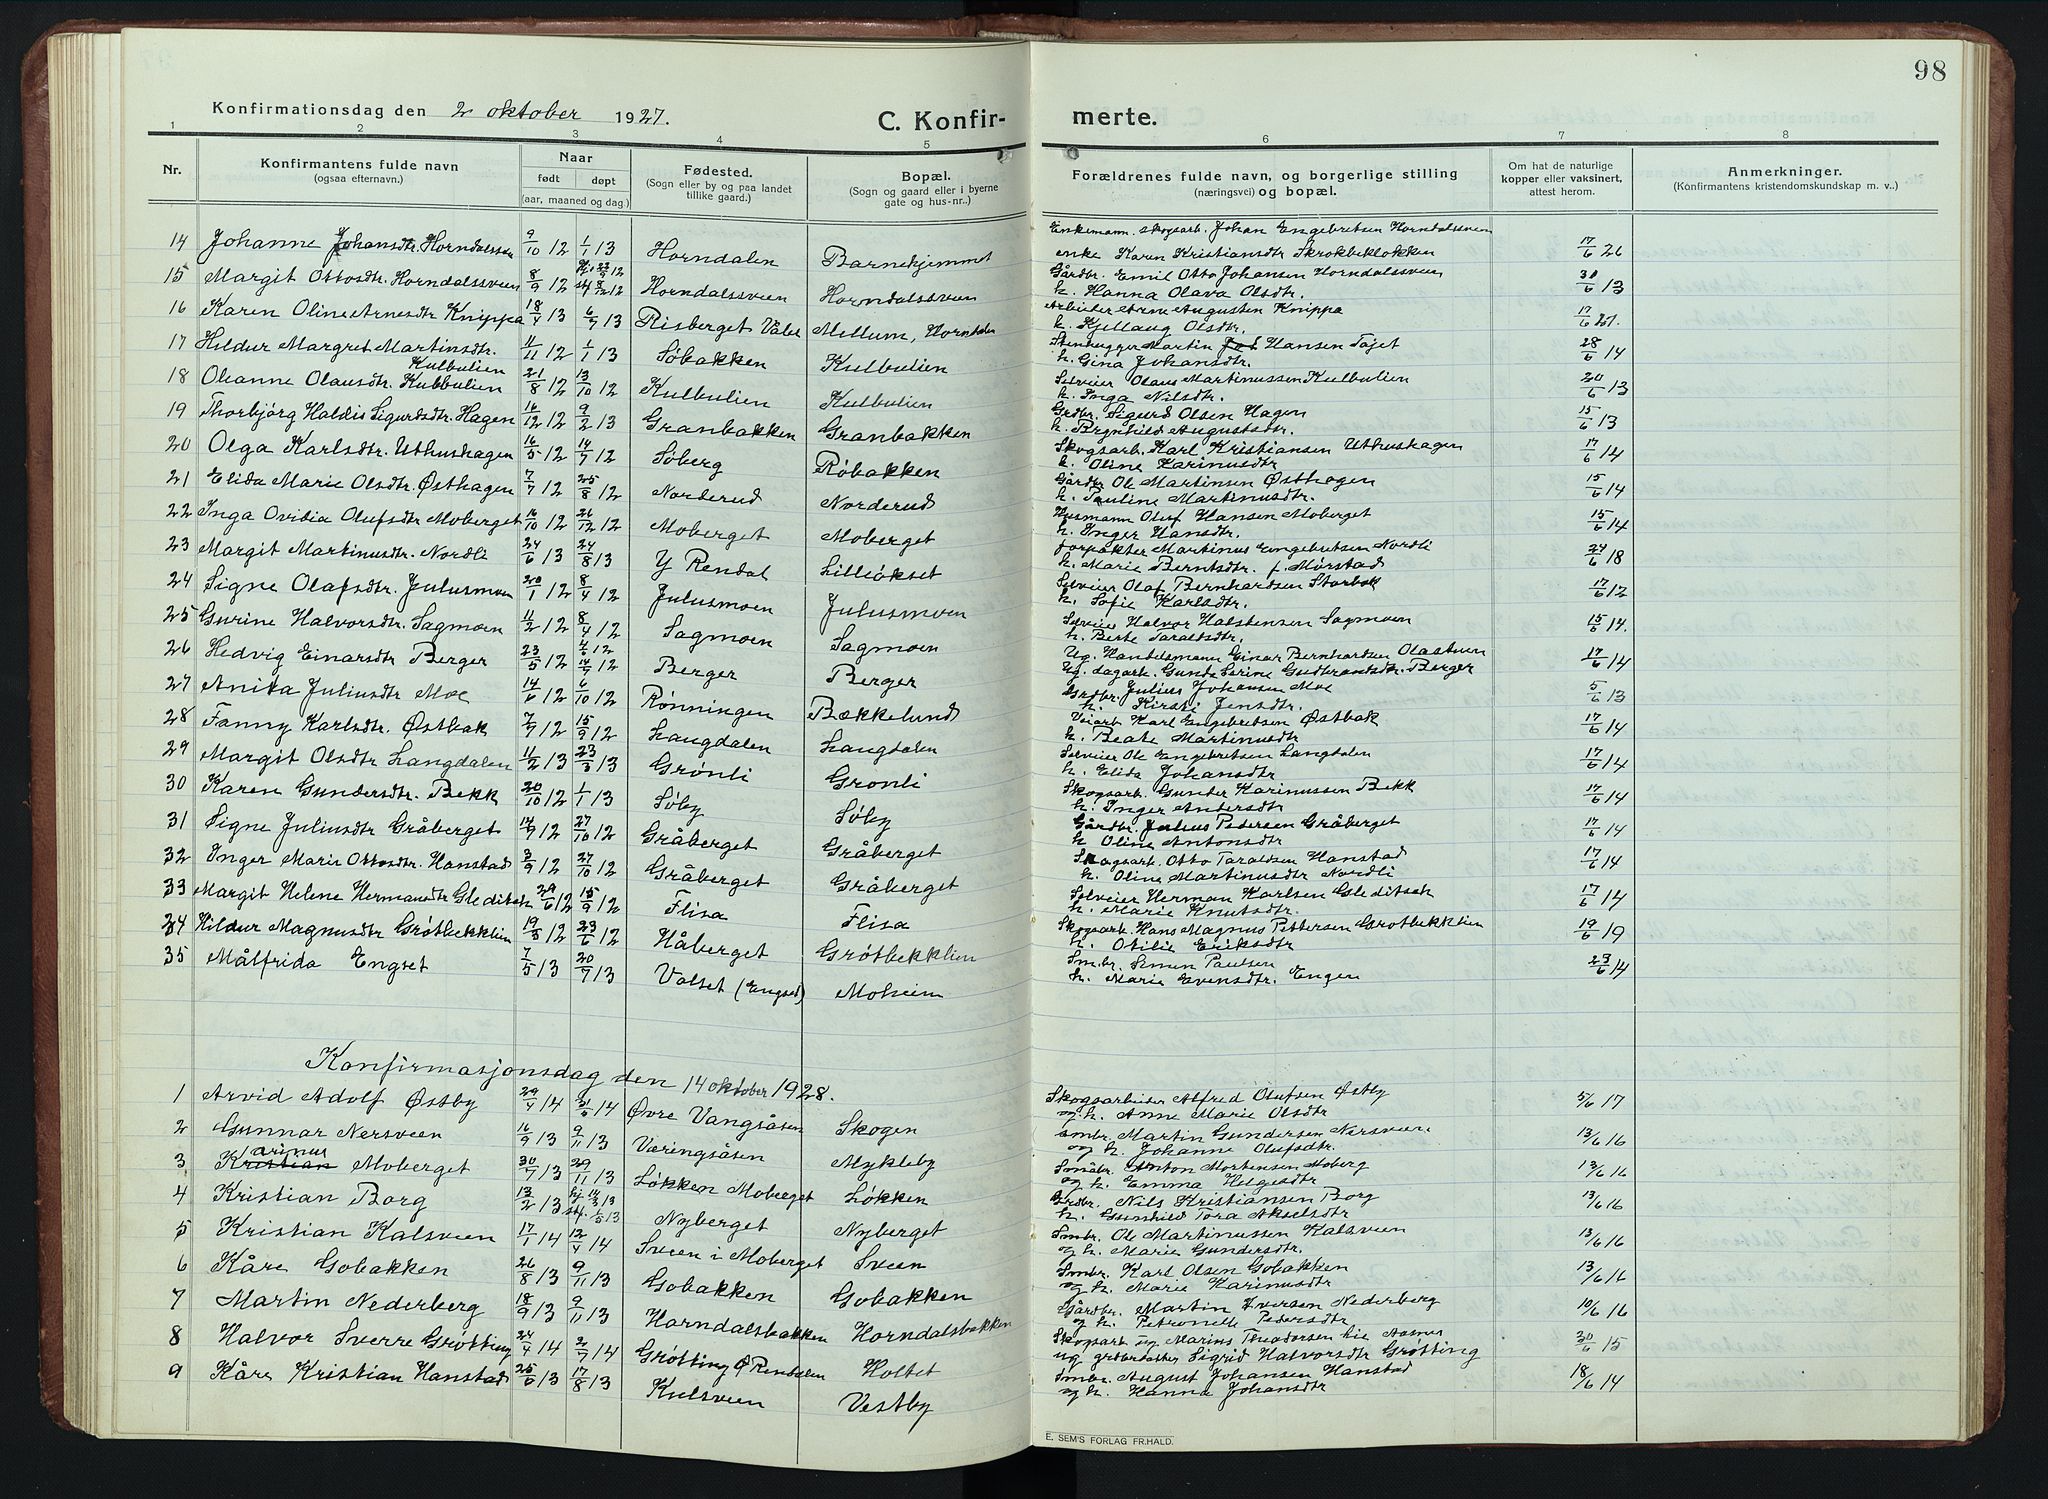 98
Konfirmationsdag den 2 oktober 1927.
C. Konfirmerte.
1 2 3 4 5 6 7 8
Nr.
Konfirmantens fulde navn
(ogsaa efternavn.)
Naar
født døpt
(aar, maaned og dag.)
Fødested.
(Sogn eller by og paa landet
tillike gaard.)
Bopæl.
(Sogn og gaard eller i byerne
gate og hus-nr..)
Forældrenes fulde navn, og borgerlige stilling
(næringsvei) og bopæl.
Om hat de naturlige
kopper eller vaksinert,
attest herom.
Anmerkninger.
(Konfirmantens kristendomskundskap m. v..)
14 Johanne Johansdtr. Horndalssveen 9/10 12 1/1 13 Horndalen Barnehjemmet Enkemann. skogsarb. Johan Engebretsen Horndalssveen
enke Karen Kristiansdtr Skrokbekløkken 17/6 26
15 Margit Ottosdtr. Horndalssveen 8/9 12 Horndalssveen Horndalssveen Gårdbr. Emil Otto Johansen Horndalssveen
h. Hanna Olava Olsdtr. 30/6 13
16 Karen Oline Arnesdtr Knippa 18/4 13 6/7 13 Risberget Våler Mellum, Horndalen Arbeider Arne Augusten Knippa
h. Kjellaug Olsdtr. 17/6 27.
17 Hildur Margret Martinsdtr. Kulbulien 11/11 12 1/1 13 Søbakken Kulbulien Stenhugger Martin Hansen Tajet
h. Gina Johansdtr. 28/6 14
18 Ohanne Olausdtr. Kulbulien 21/8 12 13/10 12 Kulbulien Kulbulien Selveier Olaus Martinussen Kulbulien
h. Inga Nilsdtr. 20/6 13
19 Thorbjørg Haldis Sigurdsdtr. Hagen 16/12 12 9/2 13 Granbakken Granbakken Grdbr. Sigurd Olsen Hagen
h. Brynhild Augustsdtr. 15/6 13
20 Olga Karlsdtr. Uthushagen 16/5 12 14/7 12 Søberg Røbakken Skogsarb. Karl Kristiansen Uthushagen
h. Oline Karinusdtr 17/6 14
21 Elida Marie Olsdtr. Østhagen 7/7 12 25/8 12 Norderud Norderud Gårdbr. Ole Martinsen Østhagen
h. Pauline Martinusdtr. 15/6 14
22 Inga Ovidia Olufsdtr Moberget 16/10 12 26/12 12 Moberget Moberget Husmann Oluf Hansen Moberget
h. Inger Hansdtr. 15/6 14
23 Margit Martinusdtr. Nordli 24/6 13 24/8 13 Y Rendal Lilleøkset forpakter Martinus Engebretsen Nordli
h. Marie Berntsdtr. f. Mørstad 24/6 18
24 Signe Olafsdtr. Julusmoen 20/1 12 8/4 12 Julusmoen Julusmoen Selveier Olaf Bernhardsen Storbak
h. Sofie Karlsdtr. 17/6 12
25 Gurine Halvorsdtr. Sagmoen 11/2 12 8/4 12 Sagmoen Sagmoen Selveier Halvor Halstensen Sagmoen
h. Berte Taraldsdtr. 15/6 14.
26 Hedvig Einarsdtr Berger 23/5 12 14/7 12 Berger Berger Ug. Handelsmann Einar Bernhardsen Olastuen
Ug. dagarb. Gunda Serine Gudbrandsdtr. Berger 17/6 14
27 Anita Juliusdtr Moe 14/6 12 6/10 12 Rønningen Bækkelund Grdbr. Julius Johansen Moe
h. Kirsti Jensdtr. 5/6 13
28 Fanny Karlsdtr. Østbak 7/9 12 15/9 12 Langdalen Langdalen Veiarb Karl Engebretsen Østbak
h. Beate Martinusdtr 17/6 14
29 Margit Olsdtr Langdalen 11/2 13 23/3 13 Grønli Grønli Selveier Ole Engebretsen Langdalen
h. Elida Johansdtr 17/6 14
30 Karen Gundersdtr. Bekk 20/10 12 1/1 13 Søby Søby Skogsarb. Gunder Karinussen Bekk
h. Inger Andersdtr 17/6 14
31 Signe Juliusdtr Gråberget 14/9 12 27/10 12 Gråberget Gråberget Gårdbr. Julius Pedersen Gråberget
h Oline Antonsdtr 17/6 14
32 Inger Marie Ottosdtr. Hanstad 3/9 12 27/10 12 Gråberget Gråberget Skogsarb. Otto Taraldsen Hanstad
h. Oline Martinusdtr Nordli 17/6 14
33 Margit Helene Hermansdtr Gleditsch 29/6 12 15/9 12 Flisa Flisa Selveier Herman Karlsen Gleditsch
h. Marie Knutsdtr. 17/6 14
34 Hildur Magnusdtr Grøtbekklien 19/3 12 23/6 12 Håberget Grøtbekklien Skogsarb. Hans Magnus Pettersen Grøtbekklien
h. Otilie Eriksdtr 19/6 19
35 Målfrida Engset 7/5 13 20/7 13 Valset (Engset) Moheim Smbr. Simen Paulsen
h. Marie Evensdtr. Engen 23/6 14
Konfirmasjonsdag den 14 oktober 1928.
1 Arvid Adolf Østby 29/4 14 14 Øvre Vangsåsen Skogen Skogsarbeider Alfred Olufsen Østby
og h. Anne Marie Olsdtr 5/6 17
2 Gunnar Nersveen 16/9 13 9/11 13 Væringsåsen Mykleby smbr. Martin Gundersen Nersveen.
og h. Johanne Olufsdtr. 13/6 16
3 Karinus Moberget 30/7 13 29/11 13 Løkken Moberget Løkken Småbr. Anton Mortensen Moberg
og h. Emma Helgesdtr 13/6 16
4 Kristian Borg 13/2 13 Nyberget Nyberget Grdbr. Nils Kristiansen Borg
h. Gunhild Tora Akselsdtr 13/6 16
5 Kristian Kalsveen 17/1 14 12/4 14 Sveen i Moberget Sveen Smbr. Ole Martinussen Kalsveen
og h. Marie Gundersdtr. 13/6 16
6 Kåre Gobakken 26/8 13 9/11 13 Gobakken Gobakken Smbr. Karl Olsen Gobakken
og h. Marie Karinusdtr 13/6 16
7 Martin Nederberg 18/9 13 9/11 13 Horndalsbakken Horndalsbakken Gårdbr. Martin Iversen Nederberg
og h. Petronelle Pedersdtr 10/6 16
8 Halvor Sverre Grøtting 24/4 14 2/7 14 Grøtting Ø Rendalen Holtet Skogsarb ug Marius Theodorsen
ug Sigrid Halvorsdtr Grøtting 30/6 15
9 Kåre Kristian Hanstad 25/6 13 17/8 13 Kulsveen Vestby Smbr. August Johansen Hanstad
og h. Hanna Johansdtr 18/6 14
E. SEM'S FORLAG FR.HALD.